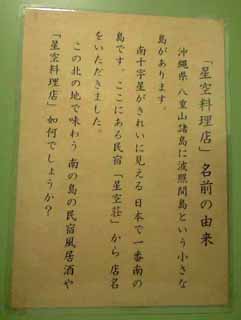 「星空料理店」名前の由来
沖縄県 八重山諸島に波照間島という小さな
島があります。
南十字星がきれいに見える 日本で一番南の
島です。ここにある民宿「星空荘」から 店名
をいただきました。
この北の地で味わう 南の島の民宿風居酒や
「星空料理店」如何でしょうか？